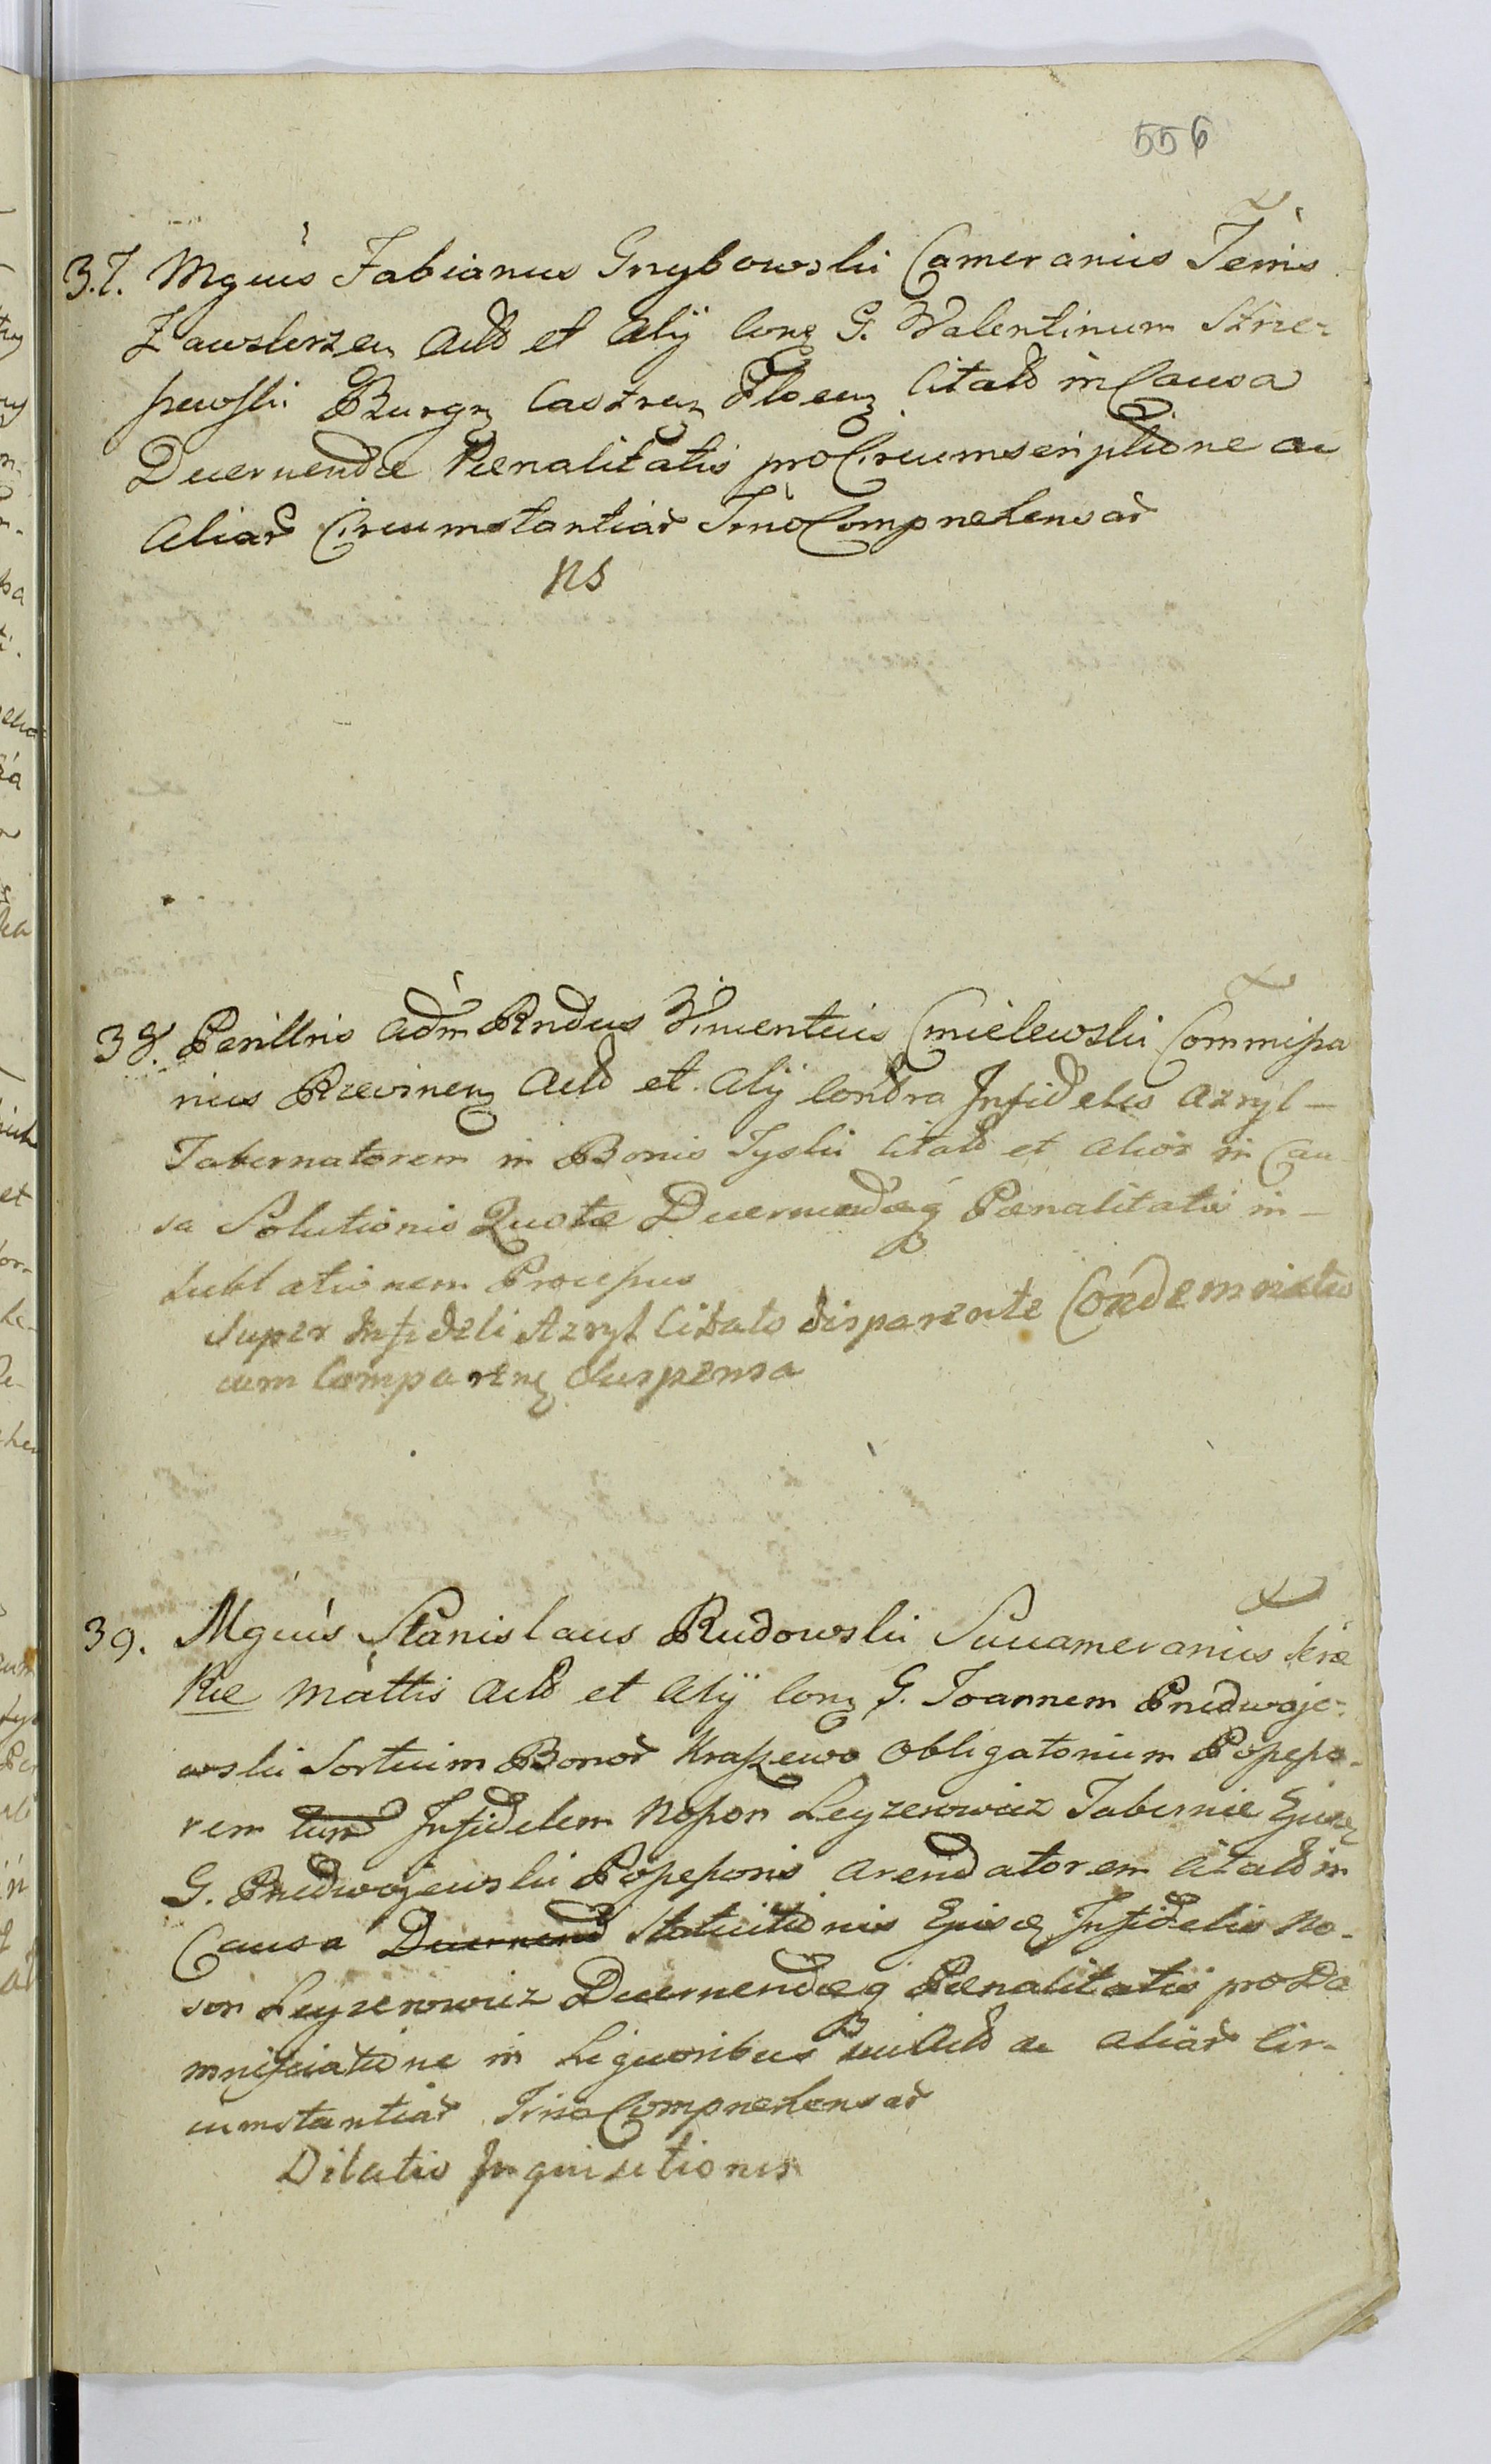 556
37. Mgcus Fabianus Grzybowski Camerarius Terris
Zawskrzen Actd et Alij Conz G. Valentinum Strze-
szewski Burgrz Castren Plocen Citatd in Causa
Decernendae Paenalitatis pro Circumscriptione ac
Aliar Circumstantiar Trno Comprehensar
ns
38. Perillris Adm Rndus Vincentius Cmielewski Commissa
rius Actd et Alij Contra Infidelis Azryl -
Tabernatorem in Bonis Tyski Citatd et Alior in Cau
sa Solutionis Quotae Decernendaeq Paenalitatis in -
Lucklationem Processus
Super Infideli Azryl Citato disparente Condemnatio
cum Comparenz Suspensa
39. Mgcus Stanislaus Rudowski Succamerarius Skrae
Rae Mattis Actd et Alij Conz G. Joannem Przedwoje-
wski Sortium Bonor Kraszewo Obligatorium Possesso-
rem tum Infidelem Nosson Leyzerowicz Tabernae Ejusd
G. Przedwojewski Possessoris Arendatorem Citatd in
Causa Decernend Statuitionis Ejusd Infidelis No-
son Leyzerowicz Decernendaeq Paenalitatis pro Da
mnificatione in Liquoribus sui Actd ac Aliar Cir-
cumstantiar Trno Comprehensar
Dilatio Inquisitionis